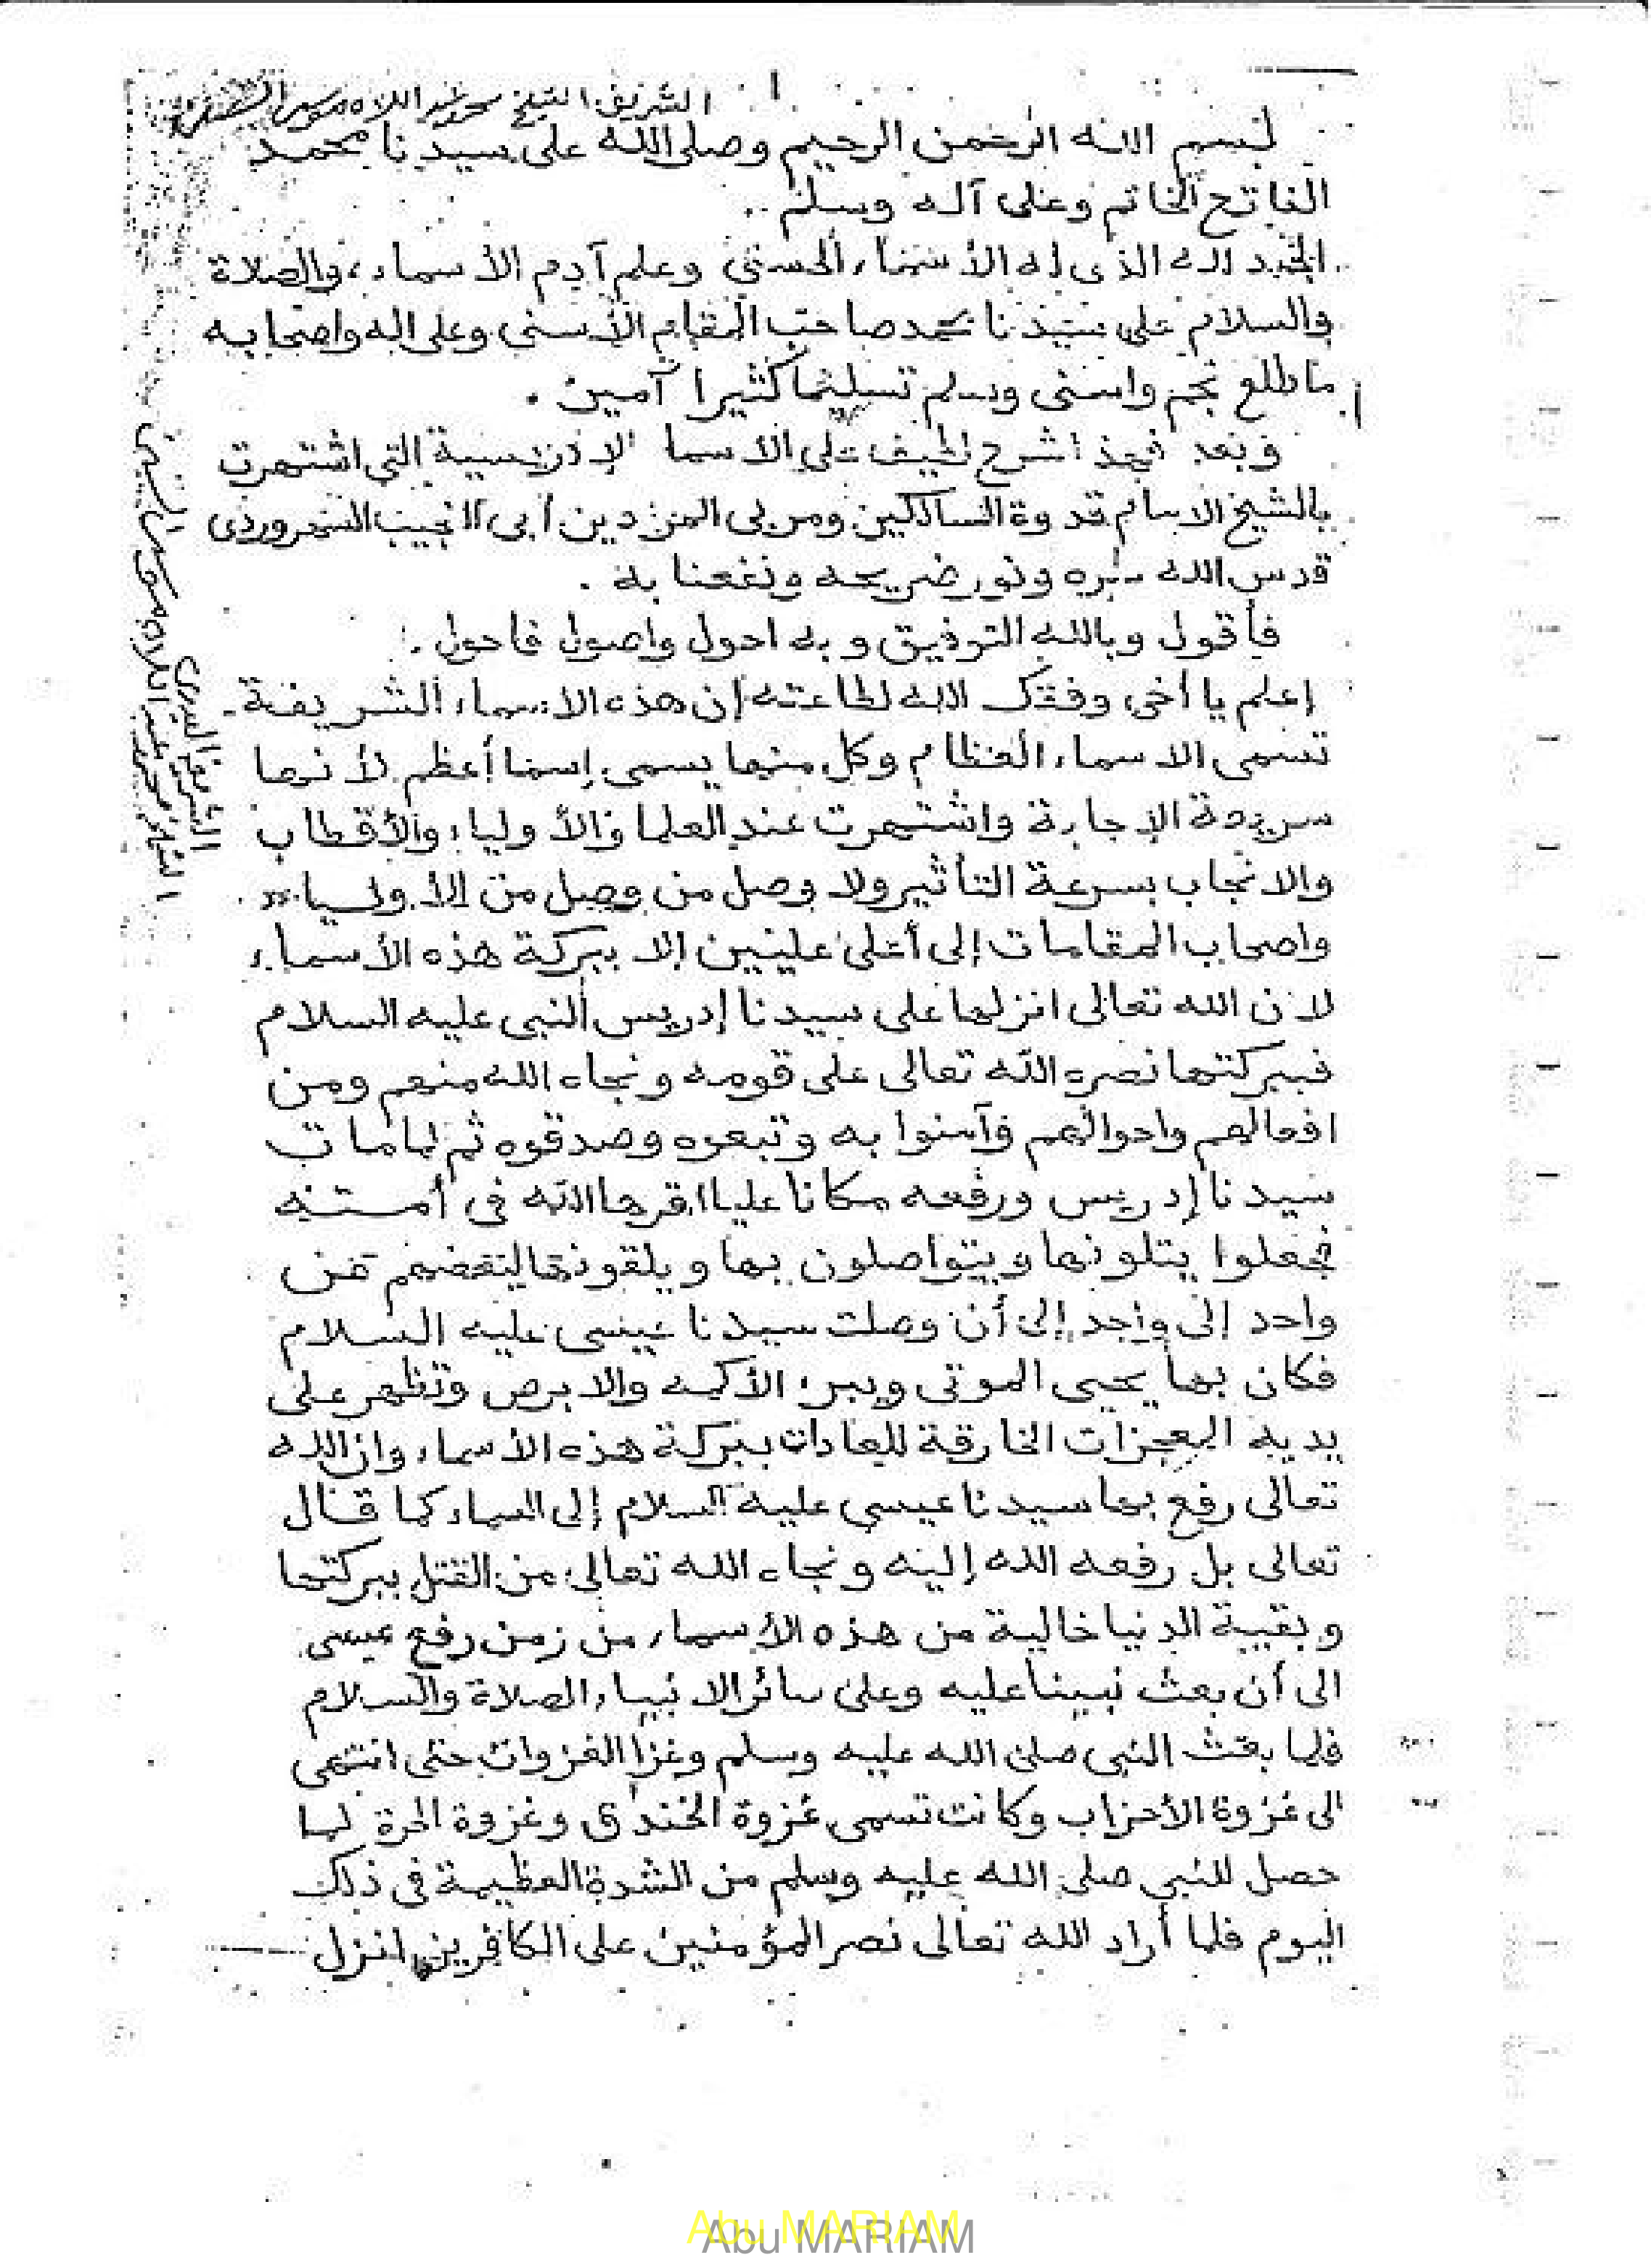 الشريف الشيخ محمد عبد اللاه موسى
بسم الله الرحمن الرحيم وصلى الله على سيدنا محمد
الفاتح الخاتم وعلى آله وسلم ..
الحمد لله الذى له الأسماء الحسنى وعلم آدم الأسماء، والصلاة
والسلام على سيدنا محمد صاحب المقام الأسنى وعلى اله واصحابه
ما طلع نجم واسنى وسلم تسليما كثيرا آمين .
وبعد فهذا شرح لطيف على الأسما الإدريسية التى اشتهرت
بالشيخ الامام قدوة السالكين ومربى المريدين أبى النجيب السهروردى
قدس الله سره ونور ضريحه ونفعنا به .
فأقول وبالله التوفيق وبه احول واصول فاحول .
إعلم يا أخى وفقك الله لطاعته إن هذه الاسماء الشريفة
تسمى الاسماء العظام وكل منها يسمى إسما أعظم لأنها
سريعة الإجابة واشتهرت عند العلما والأولياء والأقطاب
والانجاب بسرعة التأثير ولا وصل من وصل من الأولياء
واصحاب المقامات إلى أعلى عليين إلا ببركة هذه الأسماء
لان الله تعالى انزلها على سيدنا إدريس النبى عليه السلام
فببركتها نصره الله تعالى على قومه ونجاه الله منهم ومن
افعالهم واحوالهم فآمنوا به وتبعوه وصدقوه ثم لما مات
سيدنا إدريس ورفعه مكانا عليا اقرها الله فى أمته
فجعلوا يتلونها ويتواصلون بها ويلقونها لبعضهم من
واحد إلى واحد إلى أن وصلت سيدنا عيسى عليه السلام
فكان بها يحيى الموتى ويبرء الأكمه والابرص وتظهر على
يديه المعجزات الخارقة للعادات ببركة هذه الأسماء وان الله
تعالى رفع بها سيدنا عيسى عليه السلام إلى السماء كما قال
تعالى بل رفعه الله إليه ونجاه الله تعالى من القتل ببركتها
وبقية الدنيا خالية من هذه الأسماء من زمن رفع عيسى
الى أن بعث نبينا عليه وعلى سائر الانبياء الصلاة والسلام
فلما بعث النبى صلى الله عليه وسلم وغزا الغزوات حتى انتهى
الى غزوة الأحزاب وكانت تسمى غزوة الخندق وغزوة الحرة لما
حصل للنبى صلى الله عليه وسلم من الشدة العظيمة فى ذلك
اليوم فلما أراد الله تعالى نصر المؤمنين على الكافرين انزل
Abu MARIAM